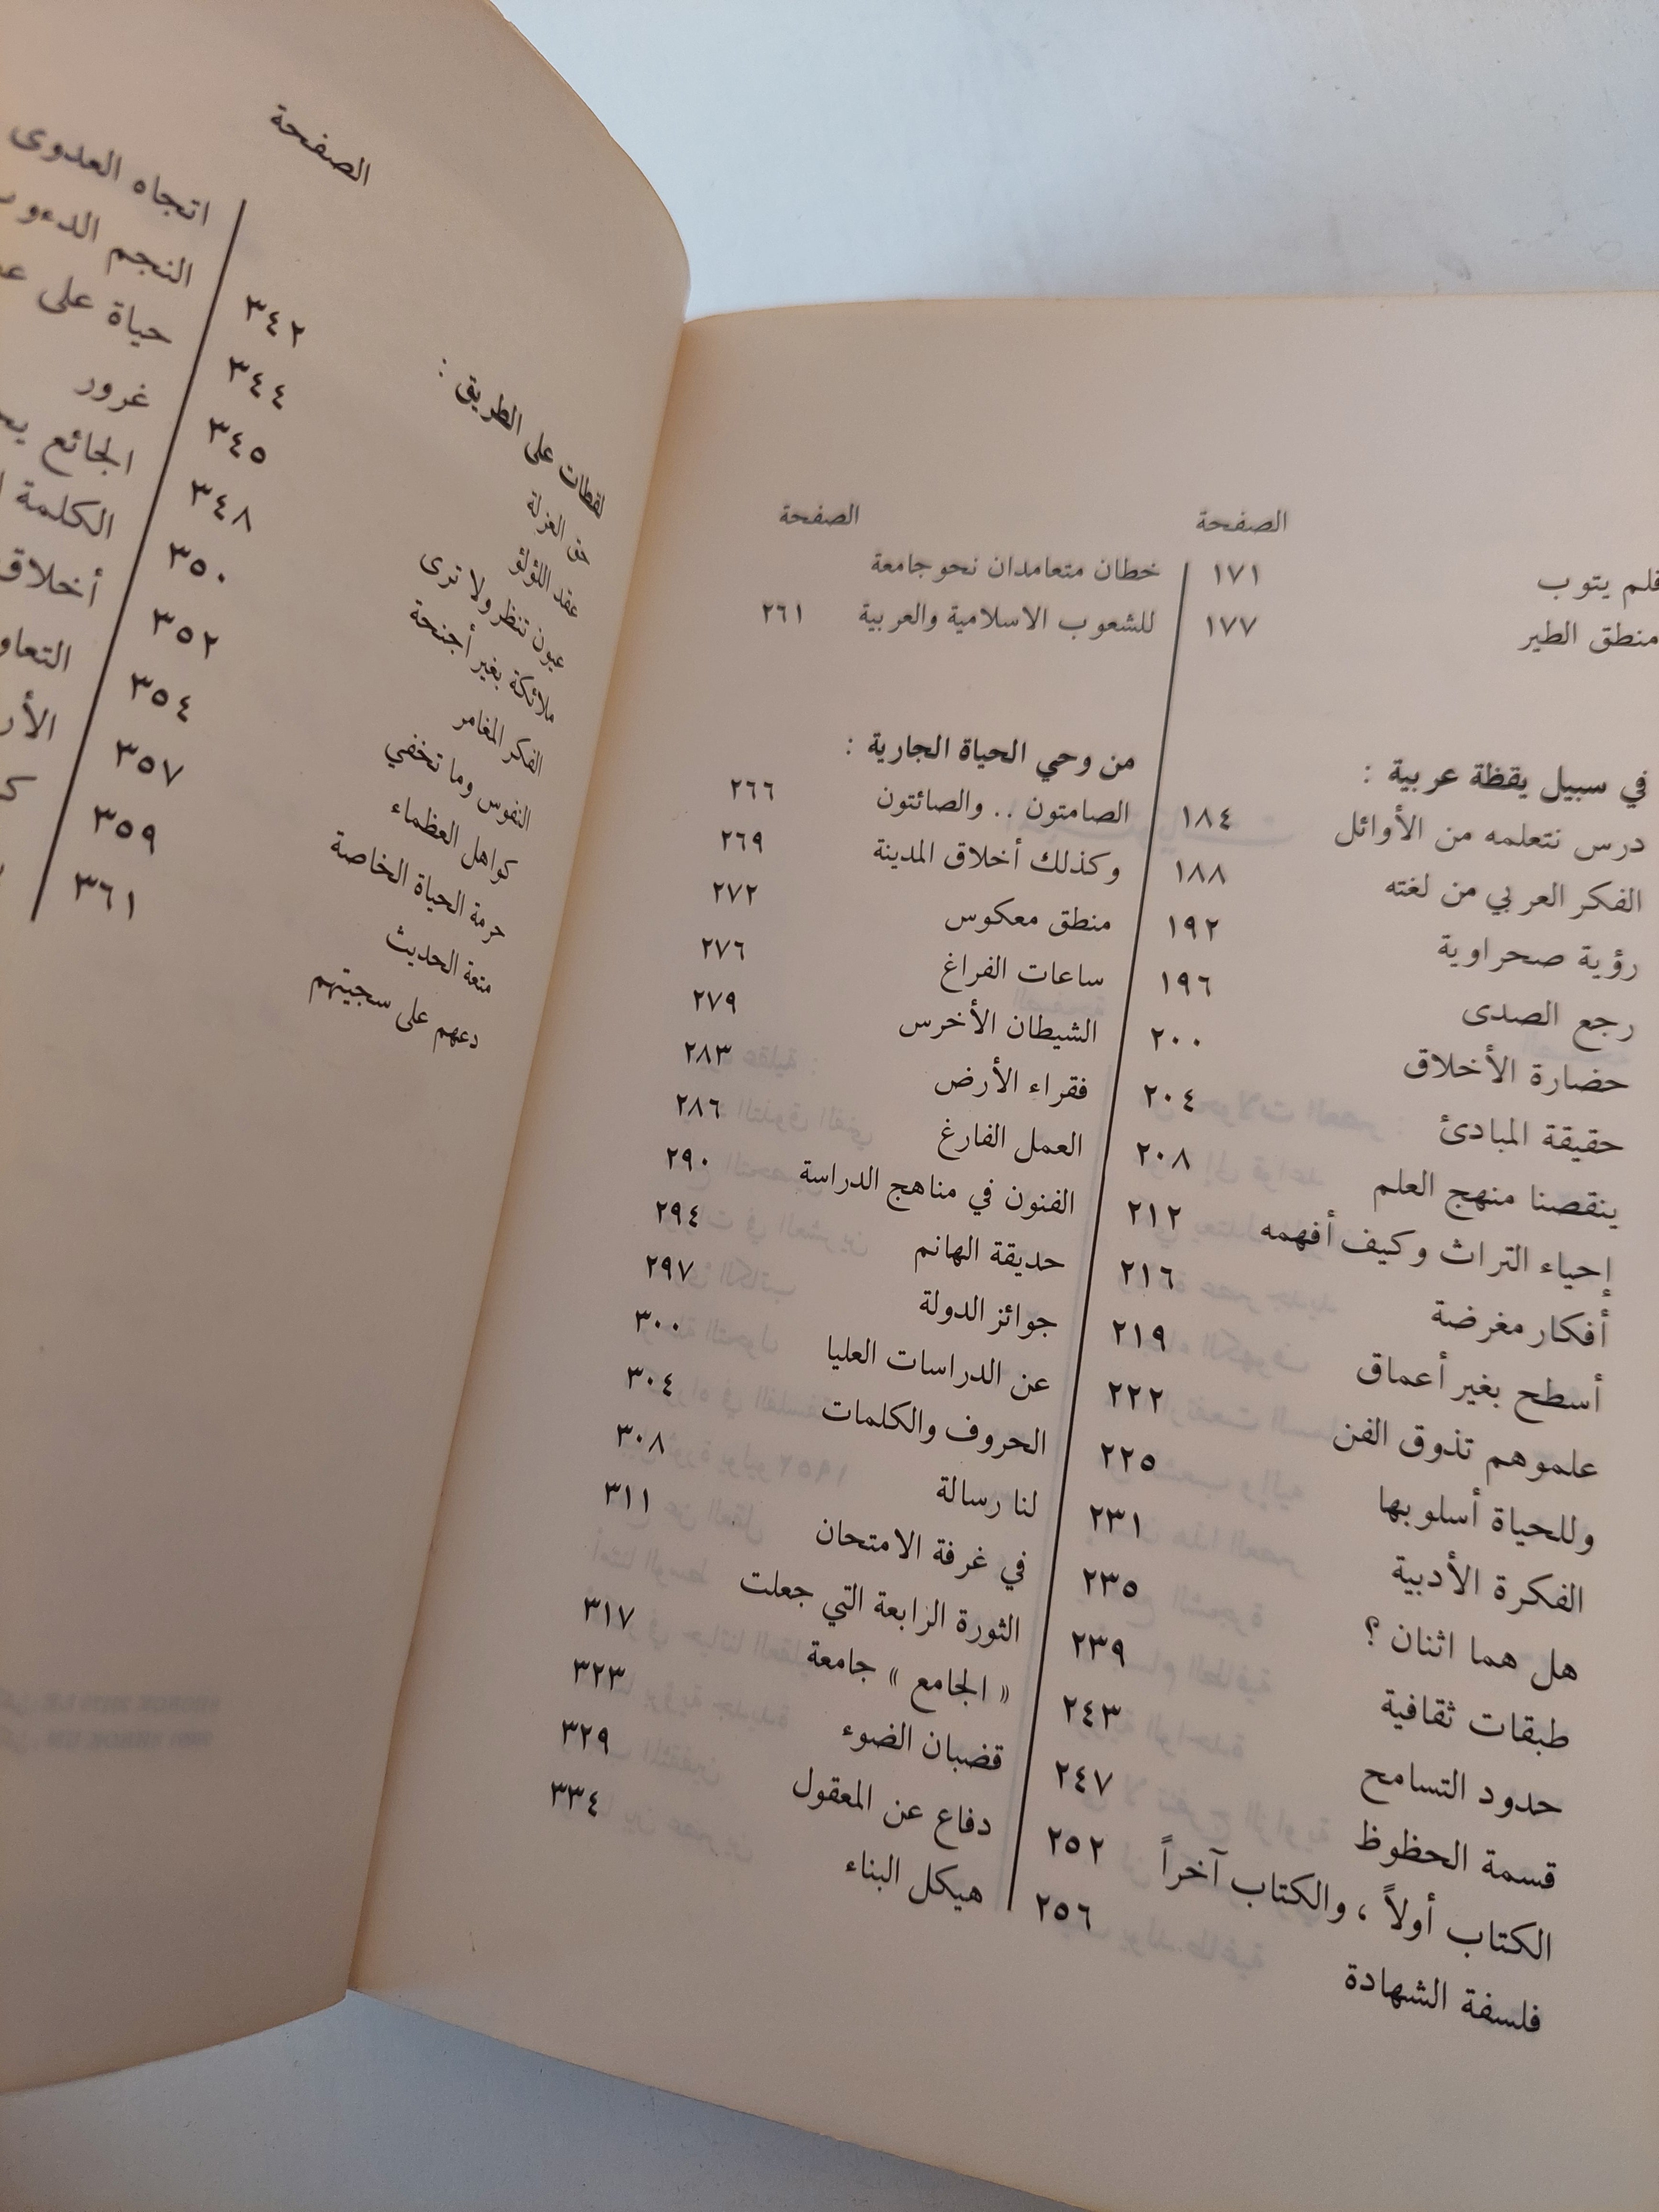 الصفحة
قلم يتوب ١٧١
منطق الطير ١٧٧
في سبيل يقظة عربية :
درس نتعلمه من الأوائل ١٨٤
الفكر العربي من لغته ١٨٨
رؤية صحراوية ١٩٢
رجع الصدى ١٩٦
حضارة الأخلاق ٢٠٠
حقيقة المبادئ ٢٠٤
ينقصنا منهج العلم ٢٠٨
إحياء التراث وكيف أفهمه ٢١٢
أفكار مغرضة ٢١٦
أسطح بغير أعماق ٢١٩
علموهم تذوق الفن ٢٢٢
وللحياة أسلوبها ٢٢٥
الفكرة الأدبية ٢٣١
هل هما اثنان ؟ ٢٣٥
طبقات ثقافية ٢٣٩
حدود التسامح ٢٤٣
قسمة الحظوظ ٢٤٧
الكتاب أولاً ، والكتاب آخراً ٢٥٢
فلسفة الشهادة ٢٥٦
الصفحة
خطان متعامدان نحو جامعة
للشعوب الاسلامية والعربية ٢٦١
من وحي الحياة الجارية :
الصامتون . . والصائتون ٢٦٦
وكذلك أخلاق المدينة ٢٦٩
منطق معكوس ٢٧٢
ساعات الفراغ ٢٧٦
الشيطان الأخرس ٢٧٩
فقراء الأرض ٢٨٣
العمل الفارغ ٢٨٦
الفنون في مناهج الدراسة ٢٩٠
حديقة الهانم ٢٩٤
جوائز الدولة ٢٩٧
عن الدراسات العليا ٣٠٠
الحروف والكلمات ٣٠٤
لنا رسالة ٣٠٨
في غرفة الامتحان ٣١١
الثورة الرابعة التي جعلت
« الجامع » جامعة ٣١٧
قضبان الضوء ٣٢٣
دفاع عن المعقول ٣٢٩
هيكل البناء ٣٣٤
الصفحة
لقطات على الطريق :
حق العزلة ٣٤٢
عقد اللؤلؤ ٣٤٤
عيون تنظر ولا ترى ٣٤٥
ملائكة بغير أجنحة ٣٤٨
الفكر المغامر ٣٥٠
النفوس وما تخفي ٣٥٢
كواهل العظماء ٣٥٤
حرمة الحياة الخاصة ٣٥٧
متعة الحديث ٣٥٩
دعهم على سجيتهم ٣٦١
اتجاه العدوى
النجم
حياة على
غرور
الجائع
الكلمة
أخلاق